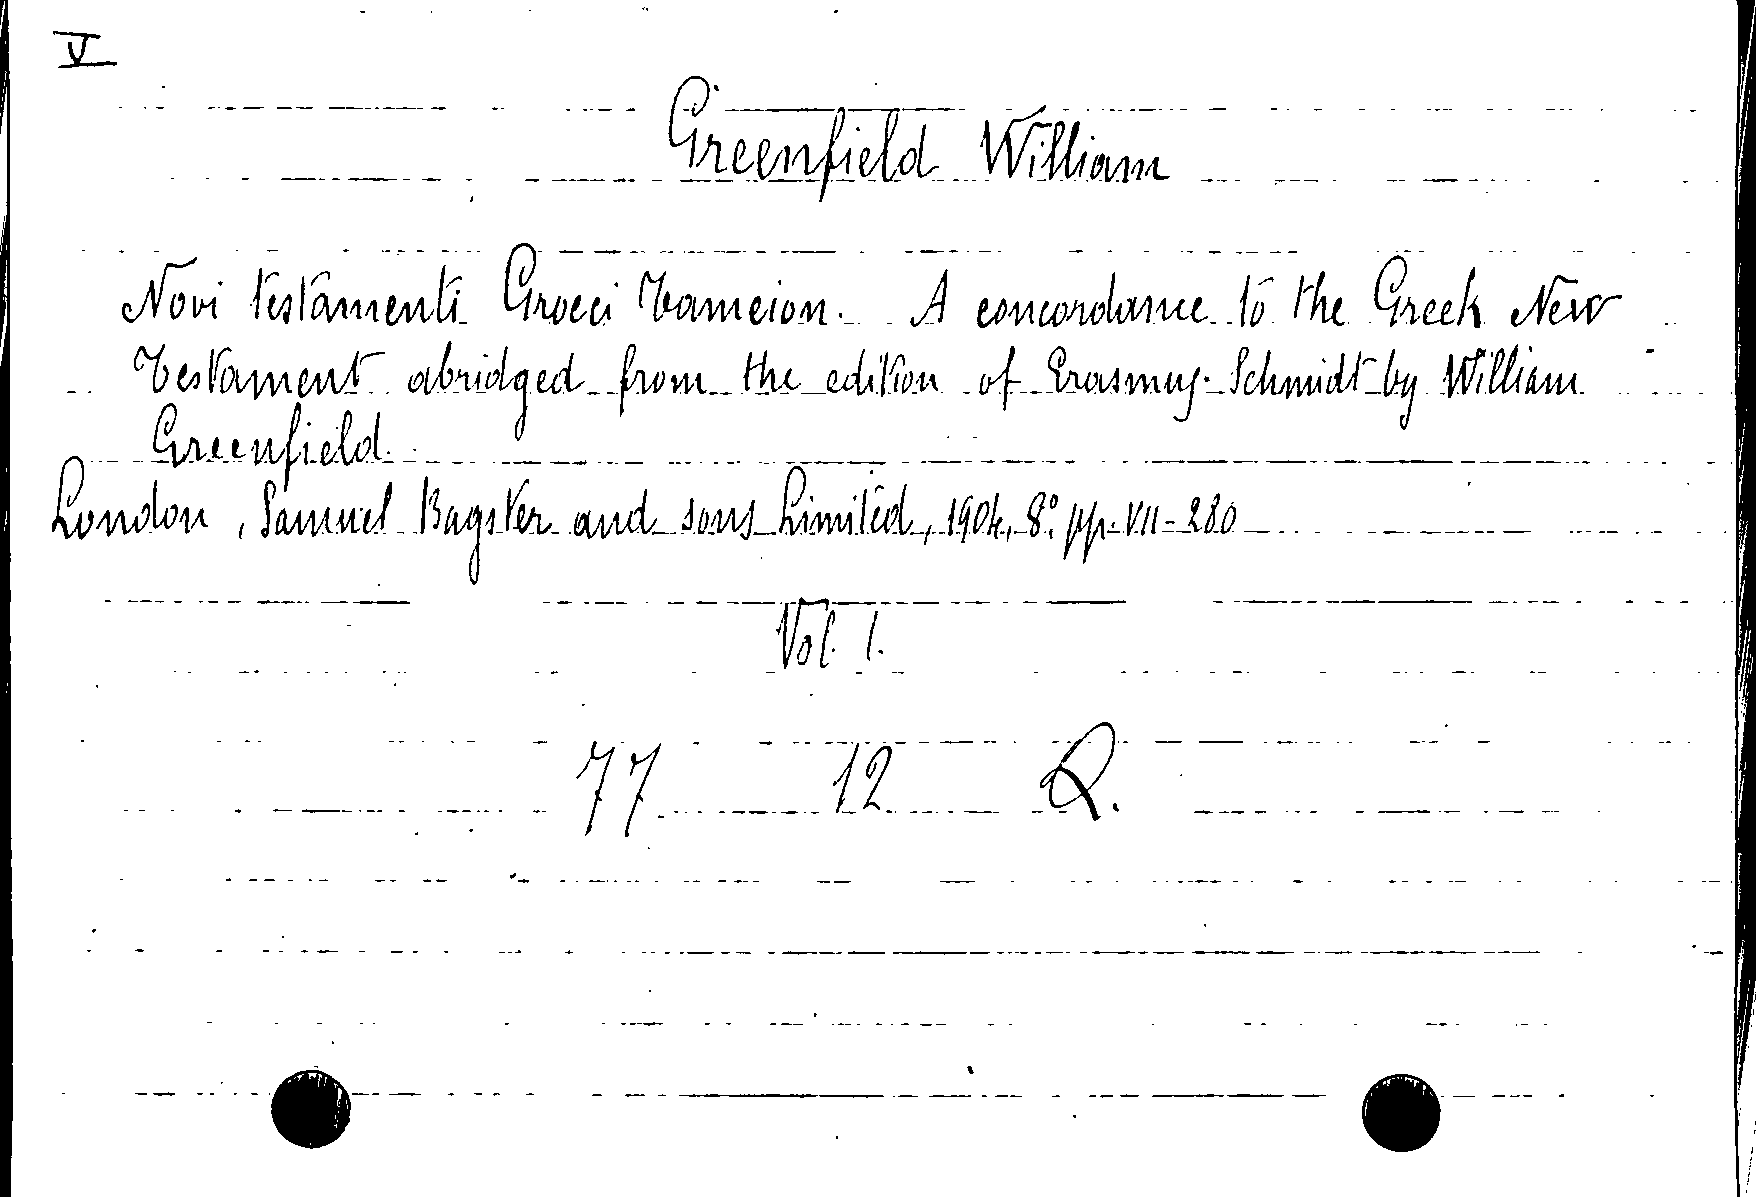 V
Greenfield William
Novi testamenti Groeci Tameion. A concordance to the Greek New
Testament abridged from the edition of Erasmus-Schmidt by William
Greenfield.
London, Samuel Bagster and sons Limited, 1904, 8° pp. VII-280
Vol. 1.
77 12 R.